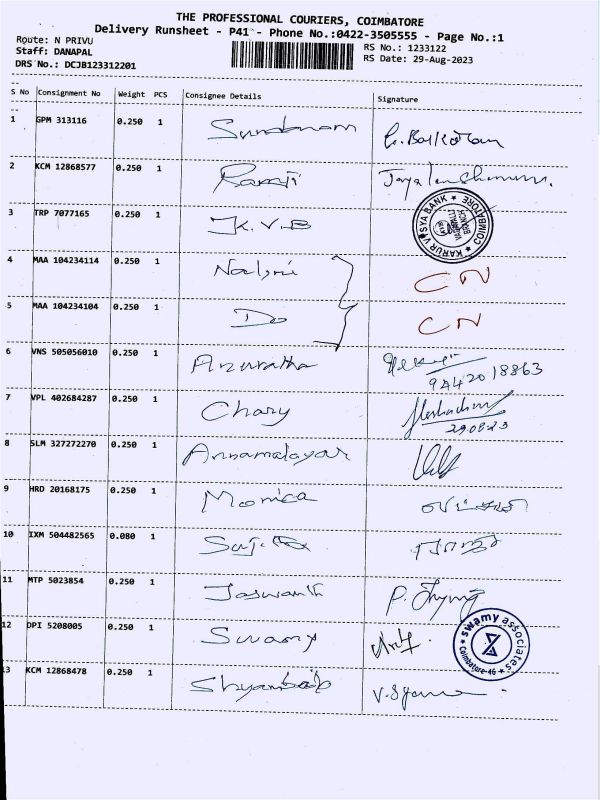 THE PROFESSIONAL COURIERS, COIMBATORE
Delivery Runsheet - P41 - Phone No.:0422-3505555 - Page No.:1
Route: N PRIVU RS No.: 1233122
Staff: DANAPAL RS Date: 29-Aug-2023
DRS No.: DCJB123312201
S No Consignment No Weight PCS Consignee Details Signature
1 GPM 313116 0.250 1 Sundaram
2 KCM 12868577 0.250 1 Ramaji
3 TRP 7077165 0.250 1 K.V.B
KARUR VYSYA BANK
COIMBATORE
BRANCH
4 MAA 104234114 0.250 1 Nalini CN
5 MAA 104234104 0.250 1 Do CN
6 VNS 505056010 0.250 1 Anuratha
9442018863
7 VPL 402684287 0.250 1 Chary
290823
8 SLM 327272270 0.250 1 Annamalayar
9 HRD 20168175 0.250 1 Monica
10 IXM 504482565 0.080 1
11 MTP 5023854 0.250 1 Jaswanth
12 DPI 5208005 0.250 1 Swamy
swamy associates
Coimbatore-46
13 KCM 12868478 0.250 1 Shyambab